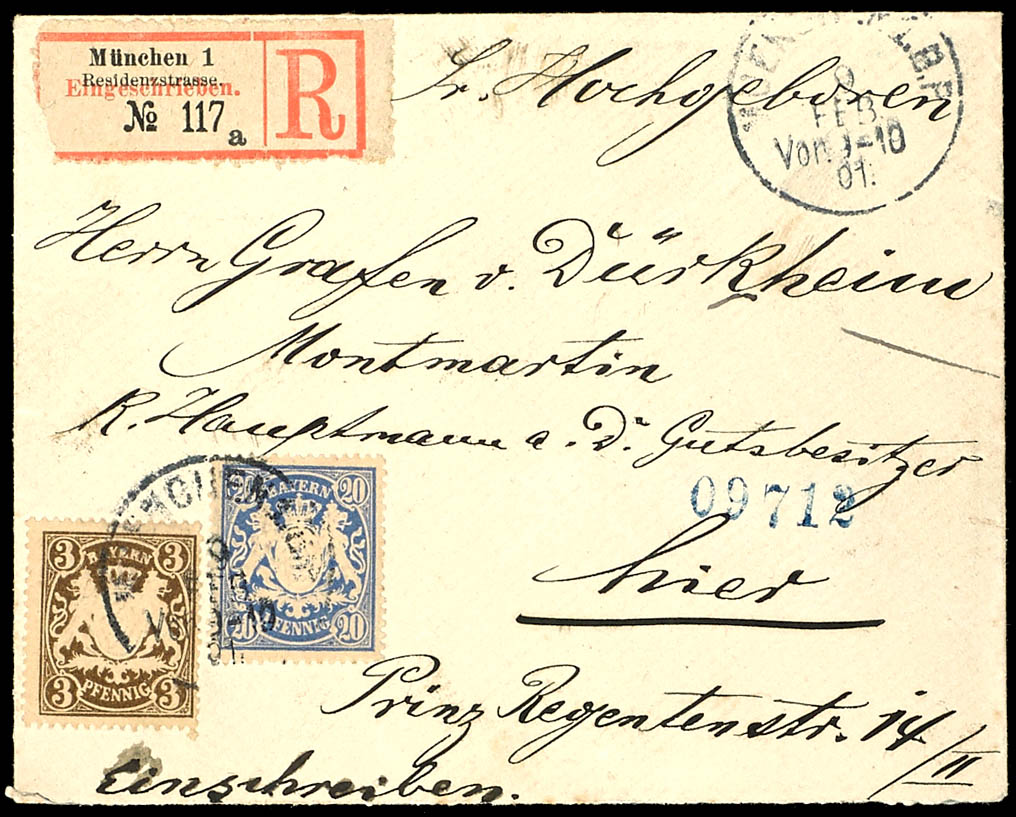 München 1
Residenzstrasse.
Eingeschrieben.
№ 117
a
R
Sr. Hochgeboren
FEB.
Vor. 9-10
01.
Herrn Grafen v. Dürkheim
Montmartin
K. Hauptmann a. D. Gutsbesitzer
09712
hier
Prinz Regentenstr. 14/II
Einschreiben.
20 20
BAYERN
20 PFENNIG 20
3 3
BAYERN
3 PFENNIG 3